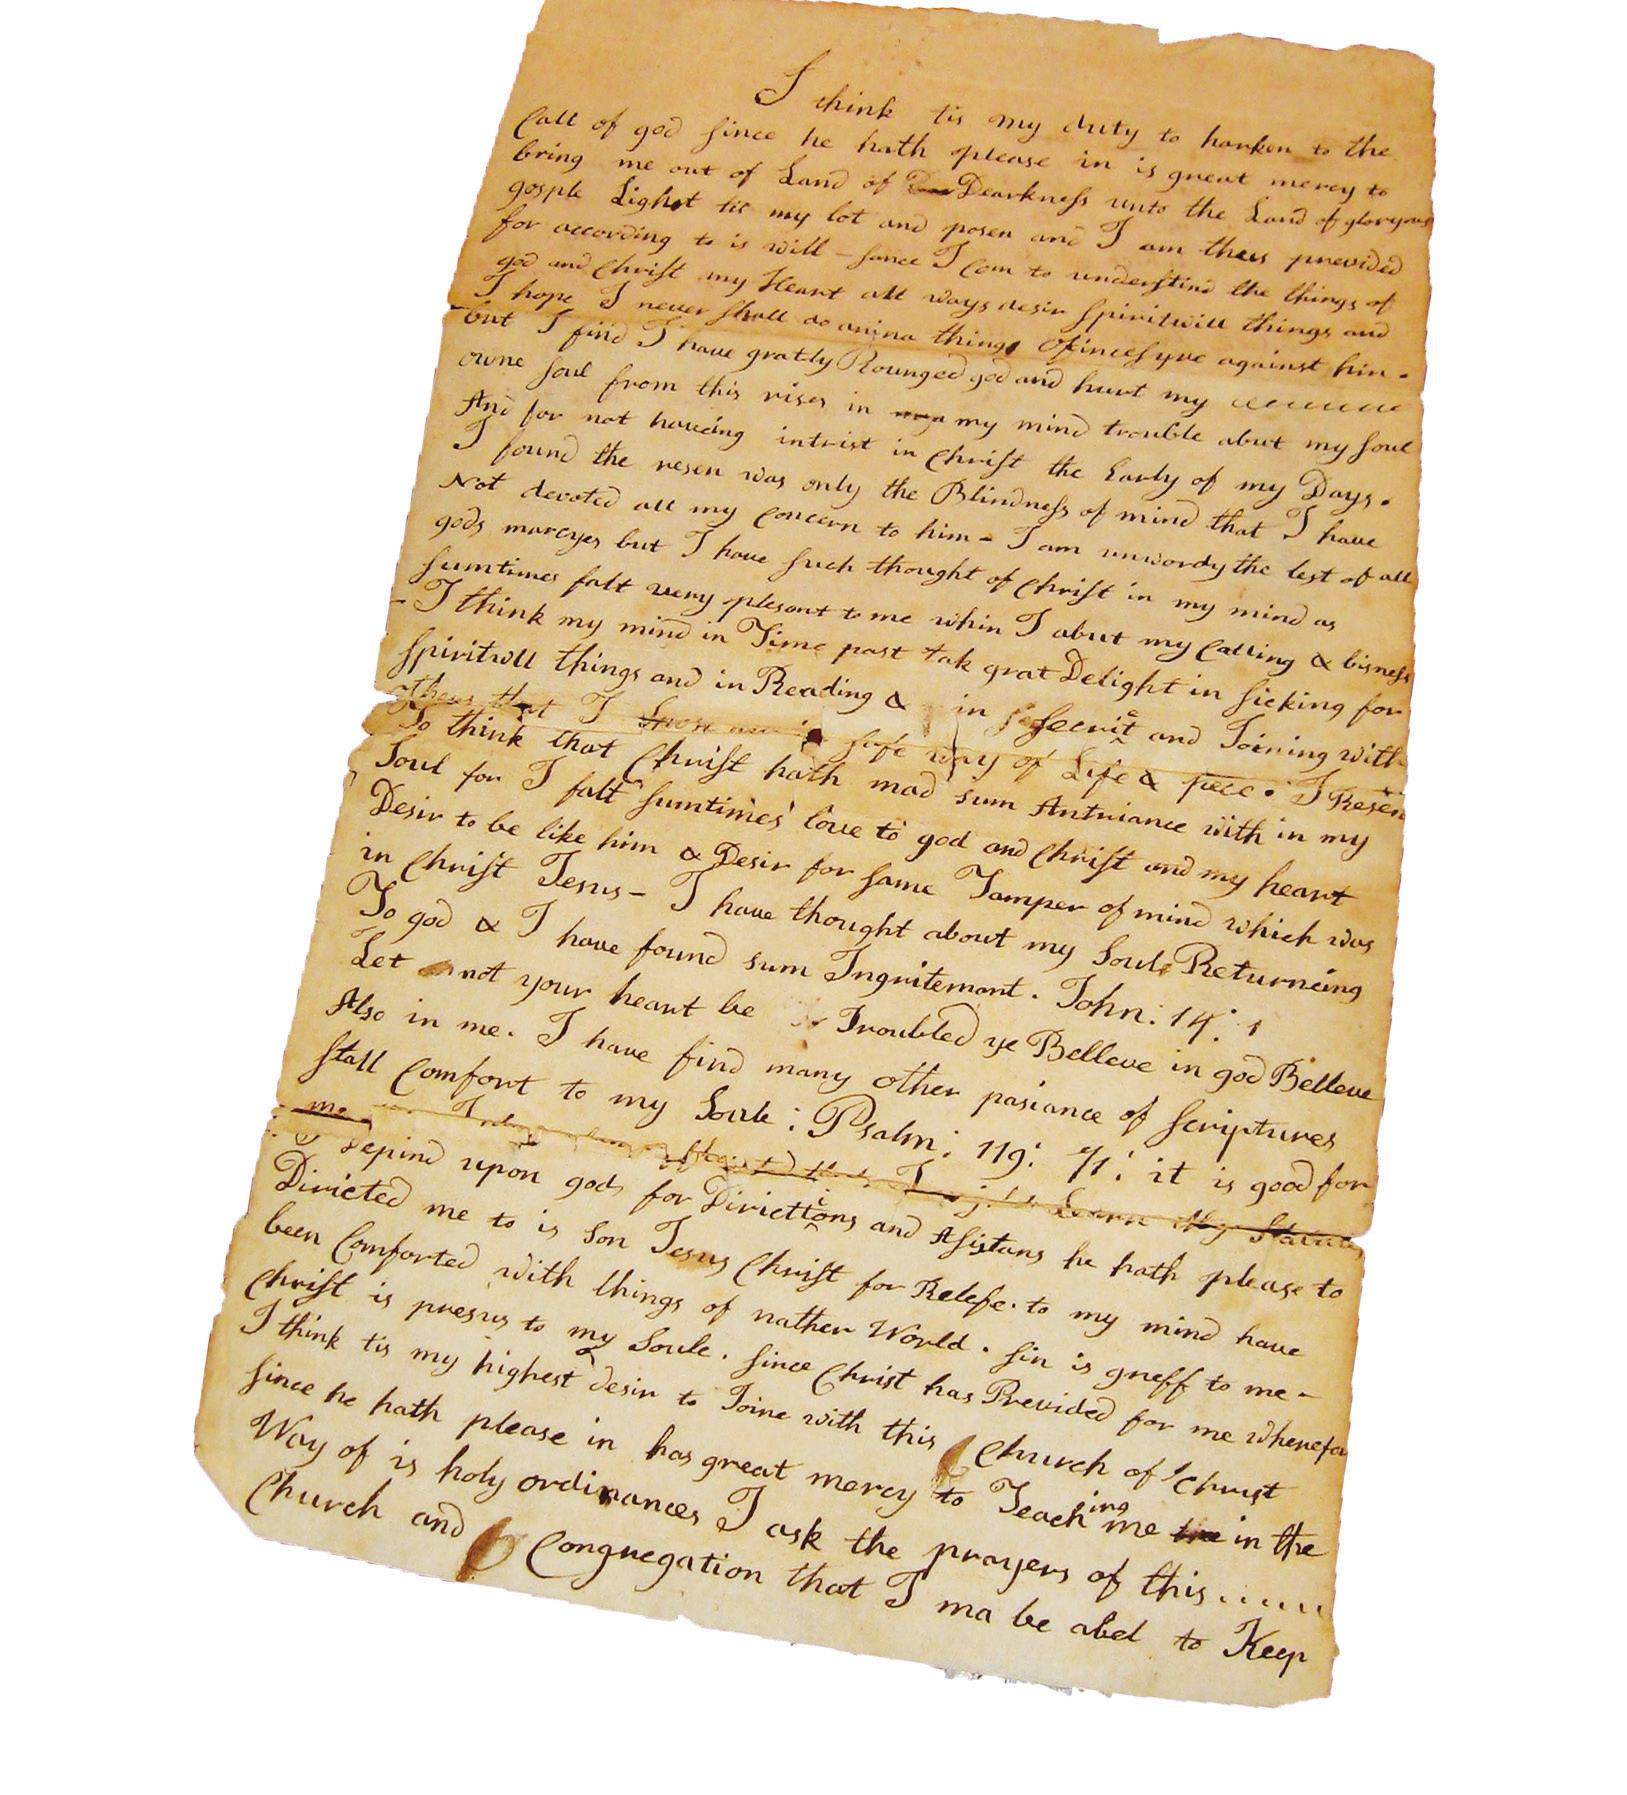 I think tis my duty to harken to the
Call of god since he hath please in is great mercy to
bring me out of Land of Dearkness unto the Land of gloryous
gosple Light tis my lot and posen and I am thus prevvided
for according to is will - sance I com to understind the things of
god and Christ my Heart all ways desir spiritwill things and
I hope I never shall do anina things ofincesyve against him.
but I find I have gratly Rounged god and hurt my
owne soul from this rises in my mind trouble abut my soul
And for not haveing intrist in Christ the Early of my Days.
I found the resen was only the Blindness of mind that I have
Not devoted all my Concern to him - I am unwordy the lest of all
gods marcyes but I have such thought of Christ in my mind as
sumtimes falt very plesant to me whin I abut my Calling & bisness
- I think my mind in Time past tak grat Delight in sicking for
spiritwll things and in Reading & in secrite and Joining with
others that I safe way of Life & pece. I Resen
To think that Christ hath mad sum Antriance with in my
Soul for I falt sumtimes love to god and Christ and my heart
Desir to be like him & Desir for same Tamper of mind which was
in Christ Jesus - I have thought about my Soul Returneing
To god & I have found sum Ingritemant. John: 14: 1
Let not your heart be Troubled ye Belleve in god Belleve
Also in me. I have find many other pasiance of scriptures
stall Comfort to my Soule: Psalm: 119: 71: it is good for
me I Learn thy Statutes
I depind upon god for Dirictions and Asistans he hath please to
Diricted me to is Son Jesus Christ for Relefe. to my mind have
been Comforted with things of nather World. sin is greff to me -
Christ is presus to my Soule. since Christ has Previded for me wherefor
I think tis my highest desir to Joine with this Church of Christ
since he hath please in has great mercy to Teaching me in the
Way of is holy ordinances I ask the prayers of this
Church and Congregation that I ma be abel to Keep